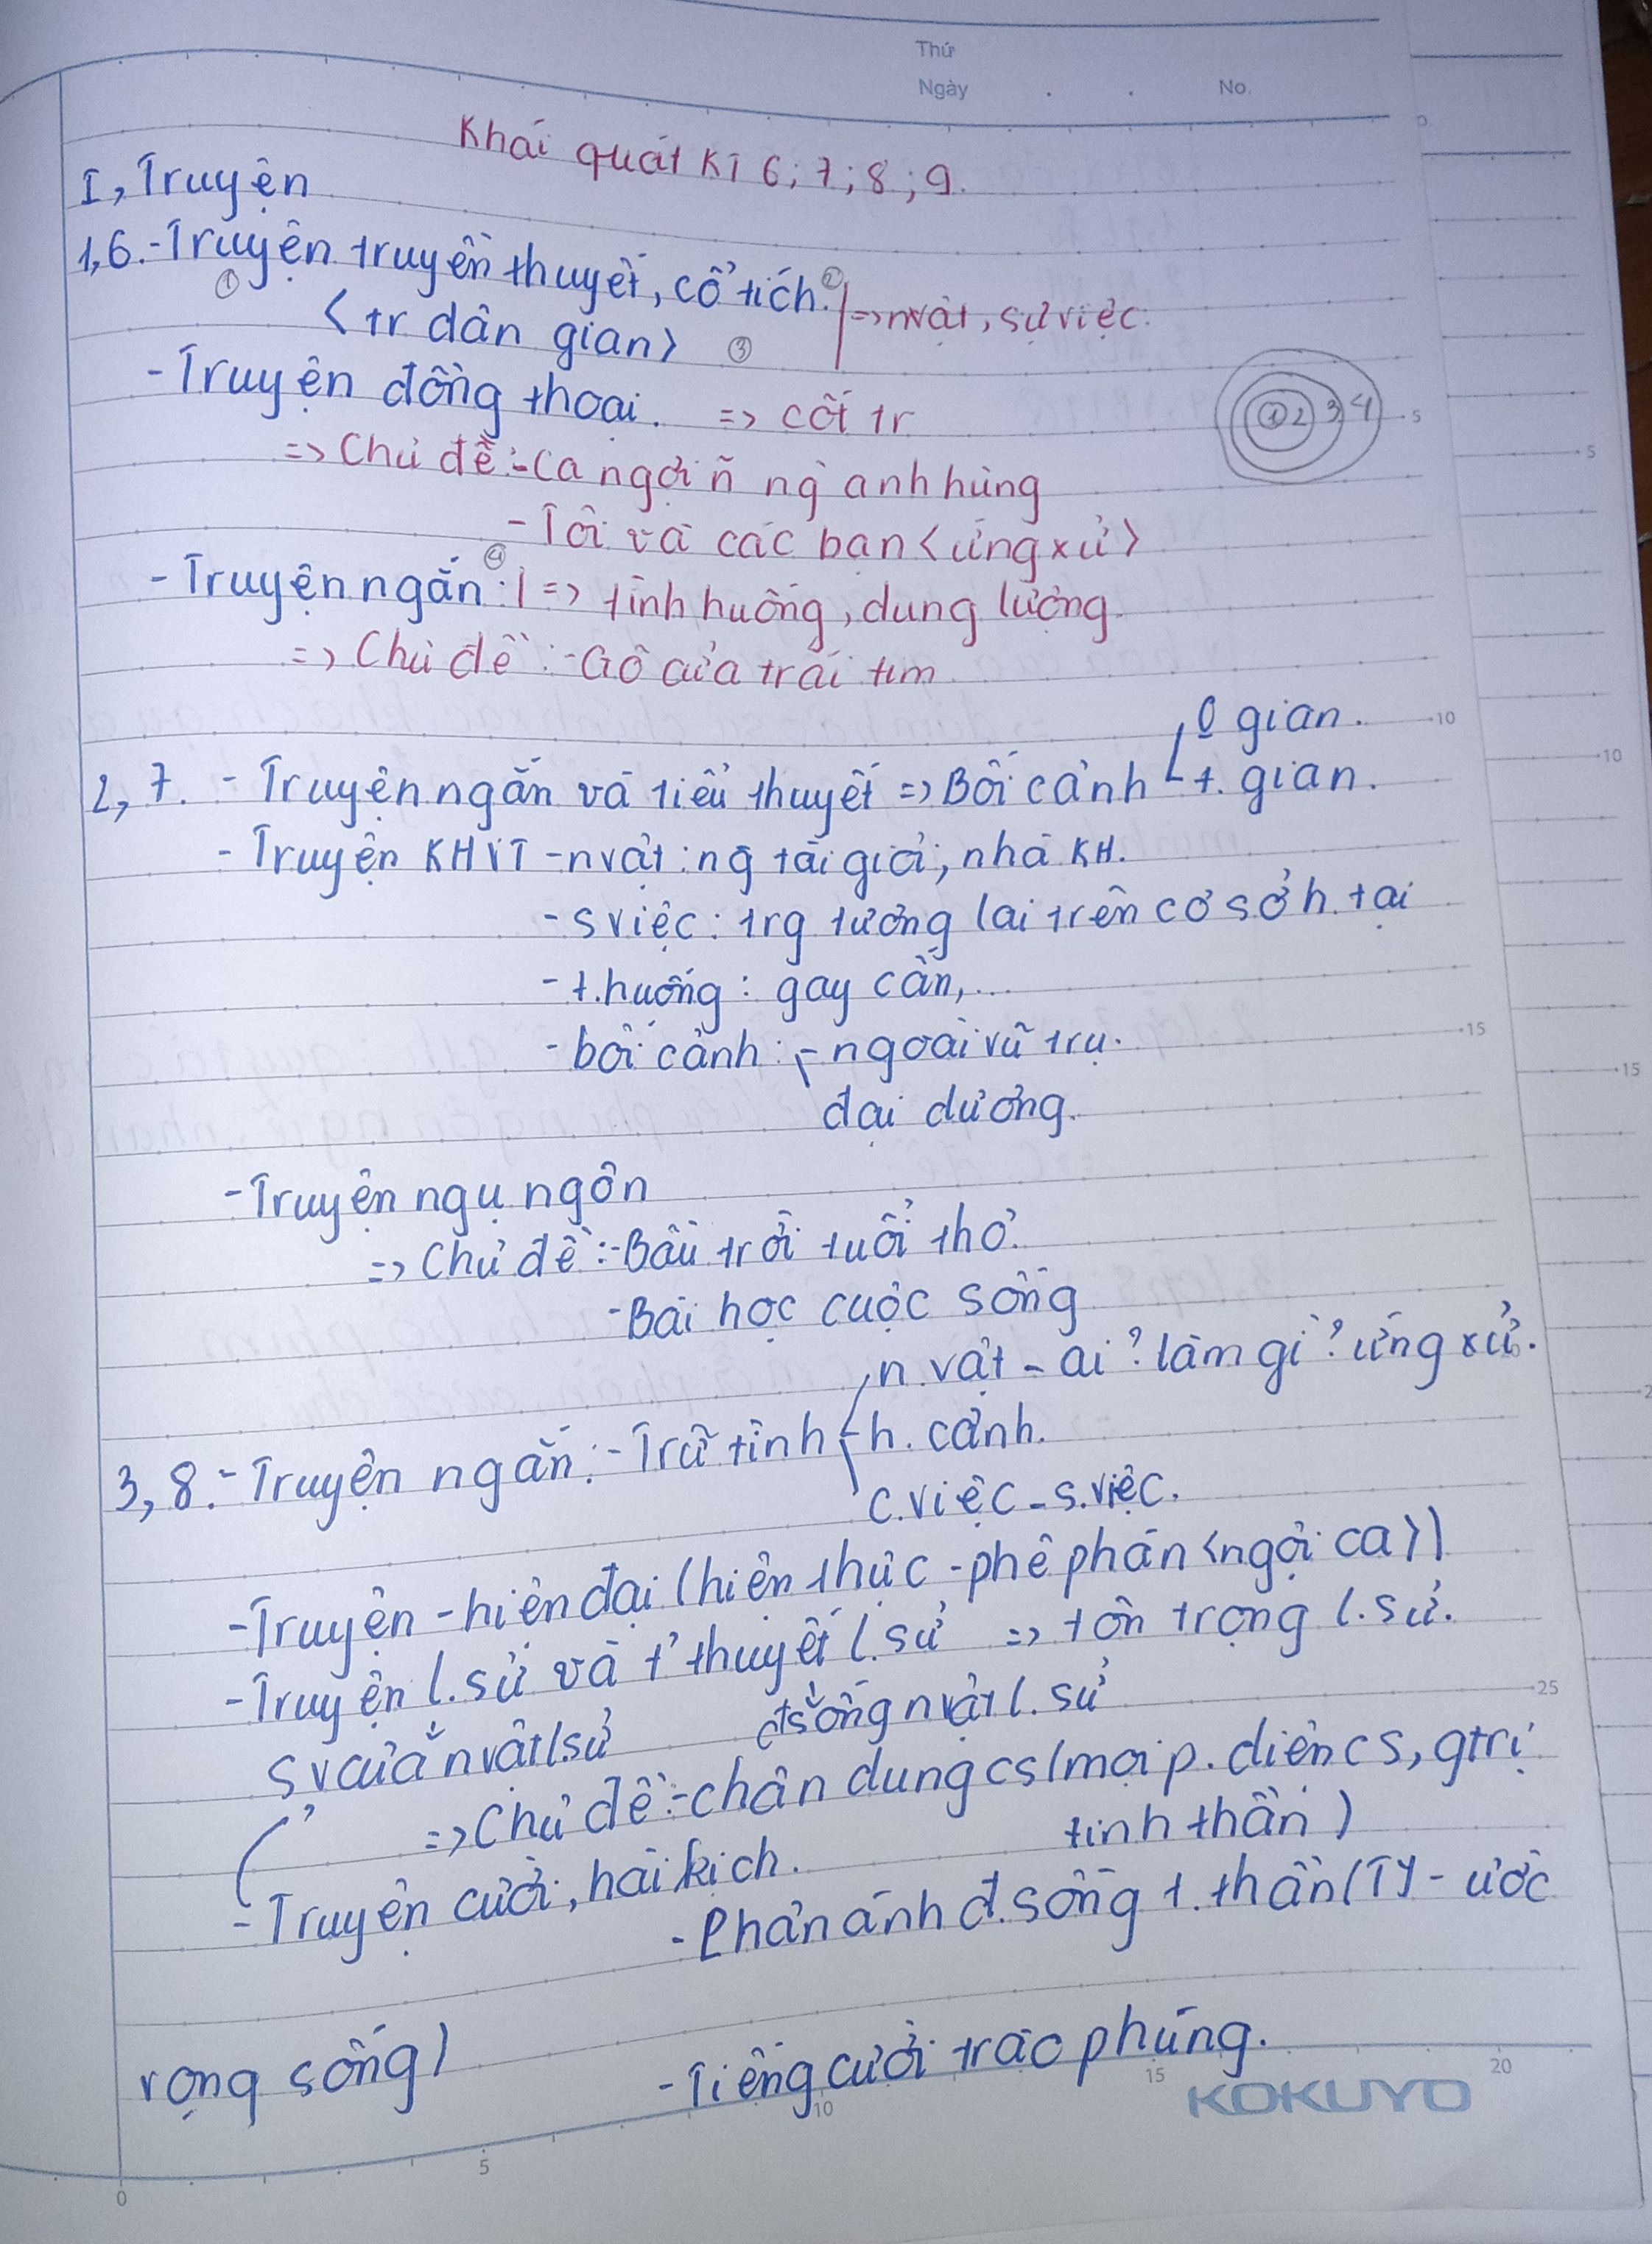 Thứ
Ngày . . No.
Khái quát KT 6; 7; 8; 9.
I, Truyện
1, 6. - Truyện truyền thuyết, cổ tích. ②
① <tr dân gian> ③ => nvật, sự việc.
- Truyện đồng thoại. => cốt tr
① 2 3 4
=> Chủ đề: - Ca ngợi ~n ng` anh hùng
- Tôi và các bạn <ứng xử>
- Truyện ngắn ④: | => tình huống, dung lượng.
=> Chủ đề: - Gõ cửa trái tim
0 gian.
2, 7. - Truyện ngắn và tiểu thuyết => Bối cảnh t. gian.
- Truyện KHVT - nvật: ng tài giỏi, nhà KH.
- sviệc: trg tương lai trên cơ sở h. tại
- t.huống: gay cấn,...
- bối cảnh: - ngoài vũ trụ.
đại dương.
- Truyện ngụ ngôn
=> Chủ đề: - Bầu trời tuổi thơ.
- Bài học cuộc sống
n. vật - ai? làm gì? ứng xử.
3, 8. - Truyện ngắn: - Trữ tình h. cảnh.
c.việc - s.việc.
- Truyện - hiện đại (hiện thực - phê phán <ngợi ca>)
- Truyện l.sử và t' thuyết l.sử => tôn trọng l.sử.
sv của nvật l.sử đsống nvật l.sử
=> Chủ đề: - chân dung cs (mọi p.diện cs, gtrị
tinh thần)
- Truyện cười, hài kịch.
- Phản ánh đ.sống t.thần (TY - ước
vọng sống)
- Tiếng cười trào phúng.
KOKUYO
0 5 10 15 20
5 10 15 25
5 10 15